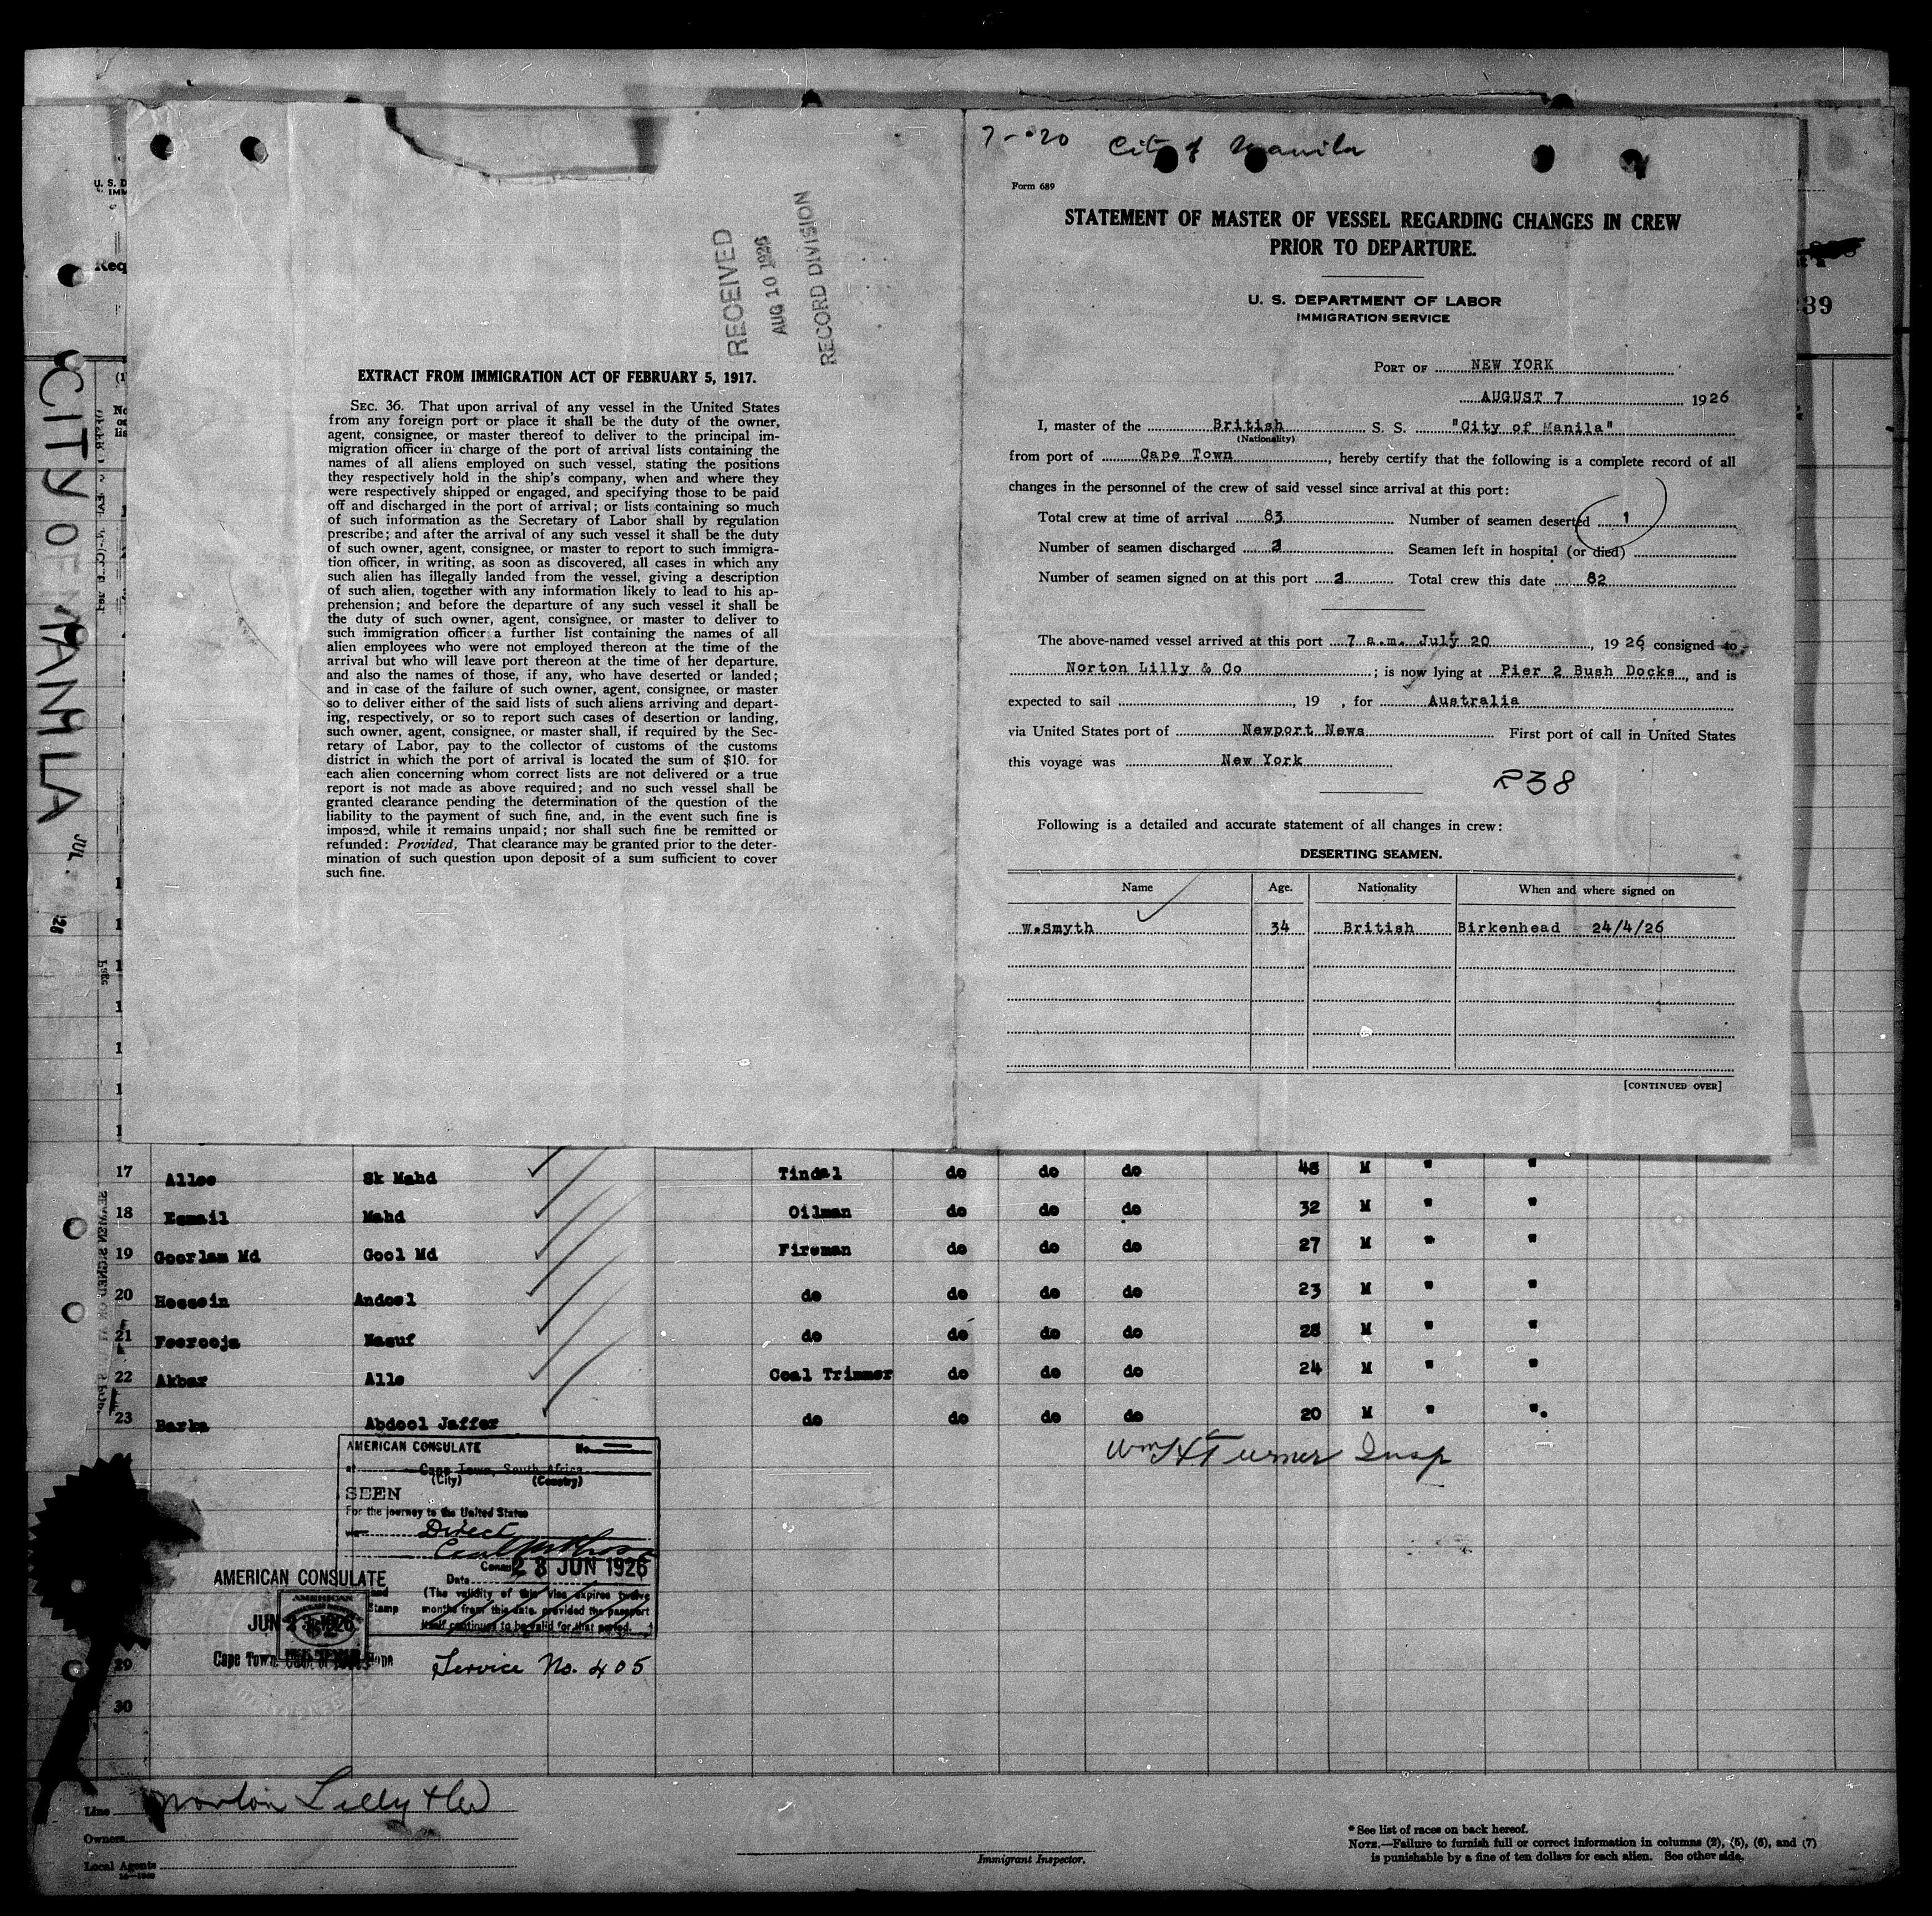 RECEIVED
AUG 10 1926
RECORD DIVISION
EXTRACT FROM IMMIGRATION ACT OF FEBRUARY 5, 1917.
SEC. 36. That upon arrival of any vessel in the United States
from any foreign port or place it shall be the duty of the owner,
agent, consignee, or master thereof to deliver to the principal im-
migration officer in charge of the port of arrival lists containing the
names of all aliens employed on such vessel, stating the positions
they respectively hold in the ship's company, when and where they
were respectively shipped or engaged, and specifying those to be paid
off and discharged in the port of arrival; or lists containing so much
of such information as the Secretary of Labor shall by regulation
prescribe; and after the arrival of any such vessel it shall be the duty
of such owner, agent, consignee, or master to report to such immigra-
tion officer, in writing, as soon as discovered, all cases in which any
such alien has illegally landed from the vessel, giving a description
of such alien, together with any information likely to lead to his ap-
prehension; and before the departure of any such vessel it shall be
the duty of such owner, agent, consignee, or master to deliver to
such immigration officer a further list containing the names of all
alien employees who were not employed thereon at the time of the
arrival but who will leave port thereon at the time of her departure,
and also the names of those, if any, who have deserted or landed;
and in case of the failure of such owner, agent, consignee, or master
so to deliver either of the said lists of such aliens arriving and depart-
ing, respectively, or so to report such cases of desertion or landing,
such owner, agent, consignee, or master shall, if required by the Sec-
retary of Labor, pay to the collector of customs of the customs
district in which the port of arrival is located the sum of $10. for
each alien concerning whom correct lists are not delivered or a true
report is not made as above required; and no such vessel shall be
granted clearance pending the determination of the question of the
liability to the payment of such fine, and, in the event such fine is
imposed, while it remains unpaid; nor shall such fine be remitted or
refunded: Provided, That clearance may be granted prior to the deter-
mination of such question upon deposit of a sum sufficient to cover
such fine.
7-20 City of Manila
Form 689
STATEMENT OF MASTER OF VESSEL REGARDING CHANGES IN CREW
PRIOR TO DEPARTURE.
U. S. DEPARTMENT OF LABOR
IMMIGRATION SERVICE
PORT OF NEW YORK
AUGUST 7 1926
I, master of the British S. S. "City of Manila"
(Nationality)
from port of Cape Town, hereby certify that the following is a complete record of all
changes in the personnel of the crew of said vessel since arrival at this port:
Total crew at time of arrival 83 Number of seamen deserted 1
Number of seamen discharged Seamen left in hospital (or died)
Number of seamen signed on at this port Total crew this date 82
The above-named vessel arrived at this port 7 a.m. July 20, 1926 consigned to
Norton Lilly & Co; is now lying at Pier 2 Bush Docks, and is
expected to sail , 19 , for Australia
via United States port of Newport News First port of call in United States
this voyage was New York
238
Following is a detailed and accurate statement of all changes in crew:
DESERTING SEAMEN.
Name Age. Nationality When and where signed on
W.Smyth 34 British Birkenhead 24/4/26
[CONTINUED OVER]
CITY OF MANILA
JUL.
Req
39
17 Allee Sk Mahd Tindal do do do 48 M " "
18 Esmail Mahd Oilman do do do 32 M " "
19 Goorlam Md Gool Md Fireman do do do 27 M " "
20 Hossein Andool do do do do 23 M " "
21 Feerooja Nasuf do do do do 28 M " "
22 Akbar Alle Coal Trimmer do do do 24 M " "
23 Barka Abdool Jaffer do do do do 20 M " ".
Wm H Turner Insp
AMERICAN CONSULATE No.
at Cape Town, South Africa
(City) (Country)
SEEN
For the journey to the United States
via Direct
28 JUN 1926
Date
(The validity of this visa expires twelve
months from this date, provided the passport
itself continues to be valid for that period.
AMERICAN CONSULATE
JUN 23 1926
Cape Town
Service No. 405
29
30
Line Norton Lilly & Co
Owners
Local Agents
Immigrant Inspector.
* See list of races on back hereof.
NOTE.—Failure to furnish full or correct information in columns (2), (5), (6), and (7)
is punishable by a fine of ten dollars for each alien. See other side.